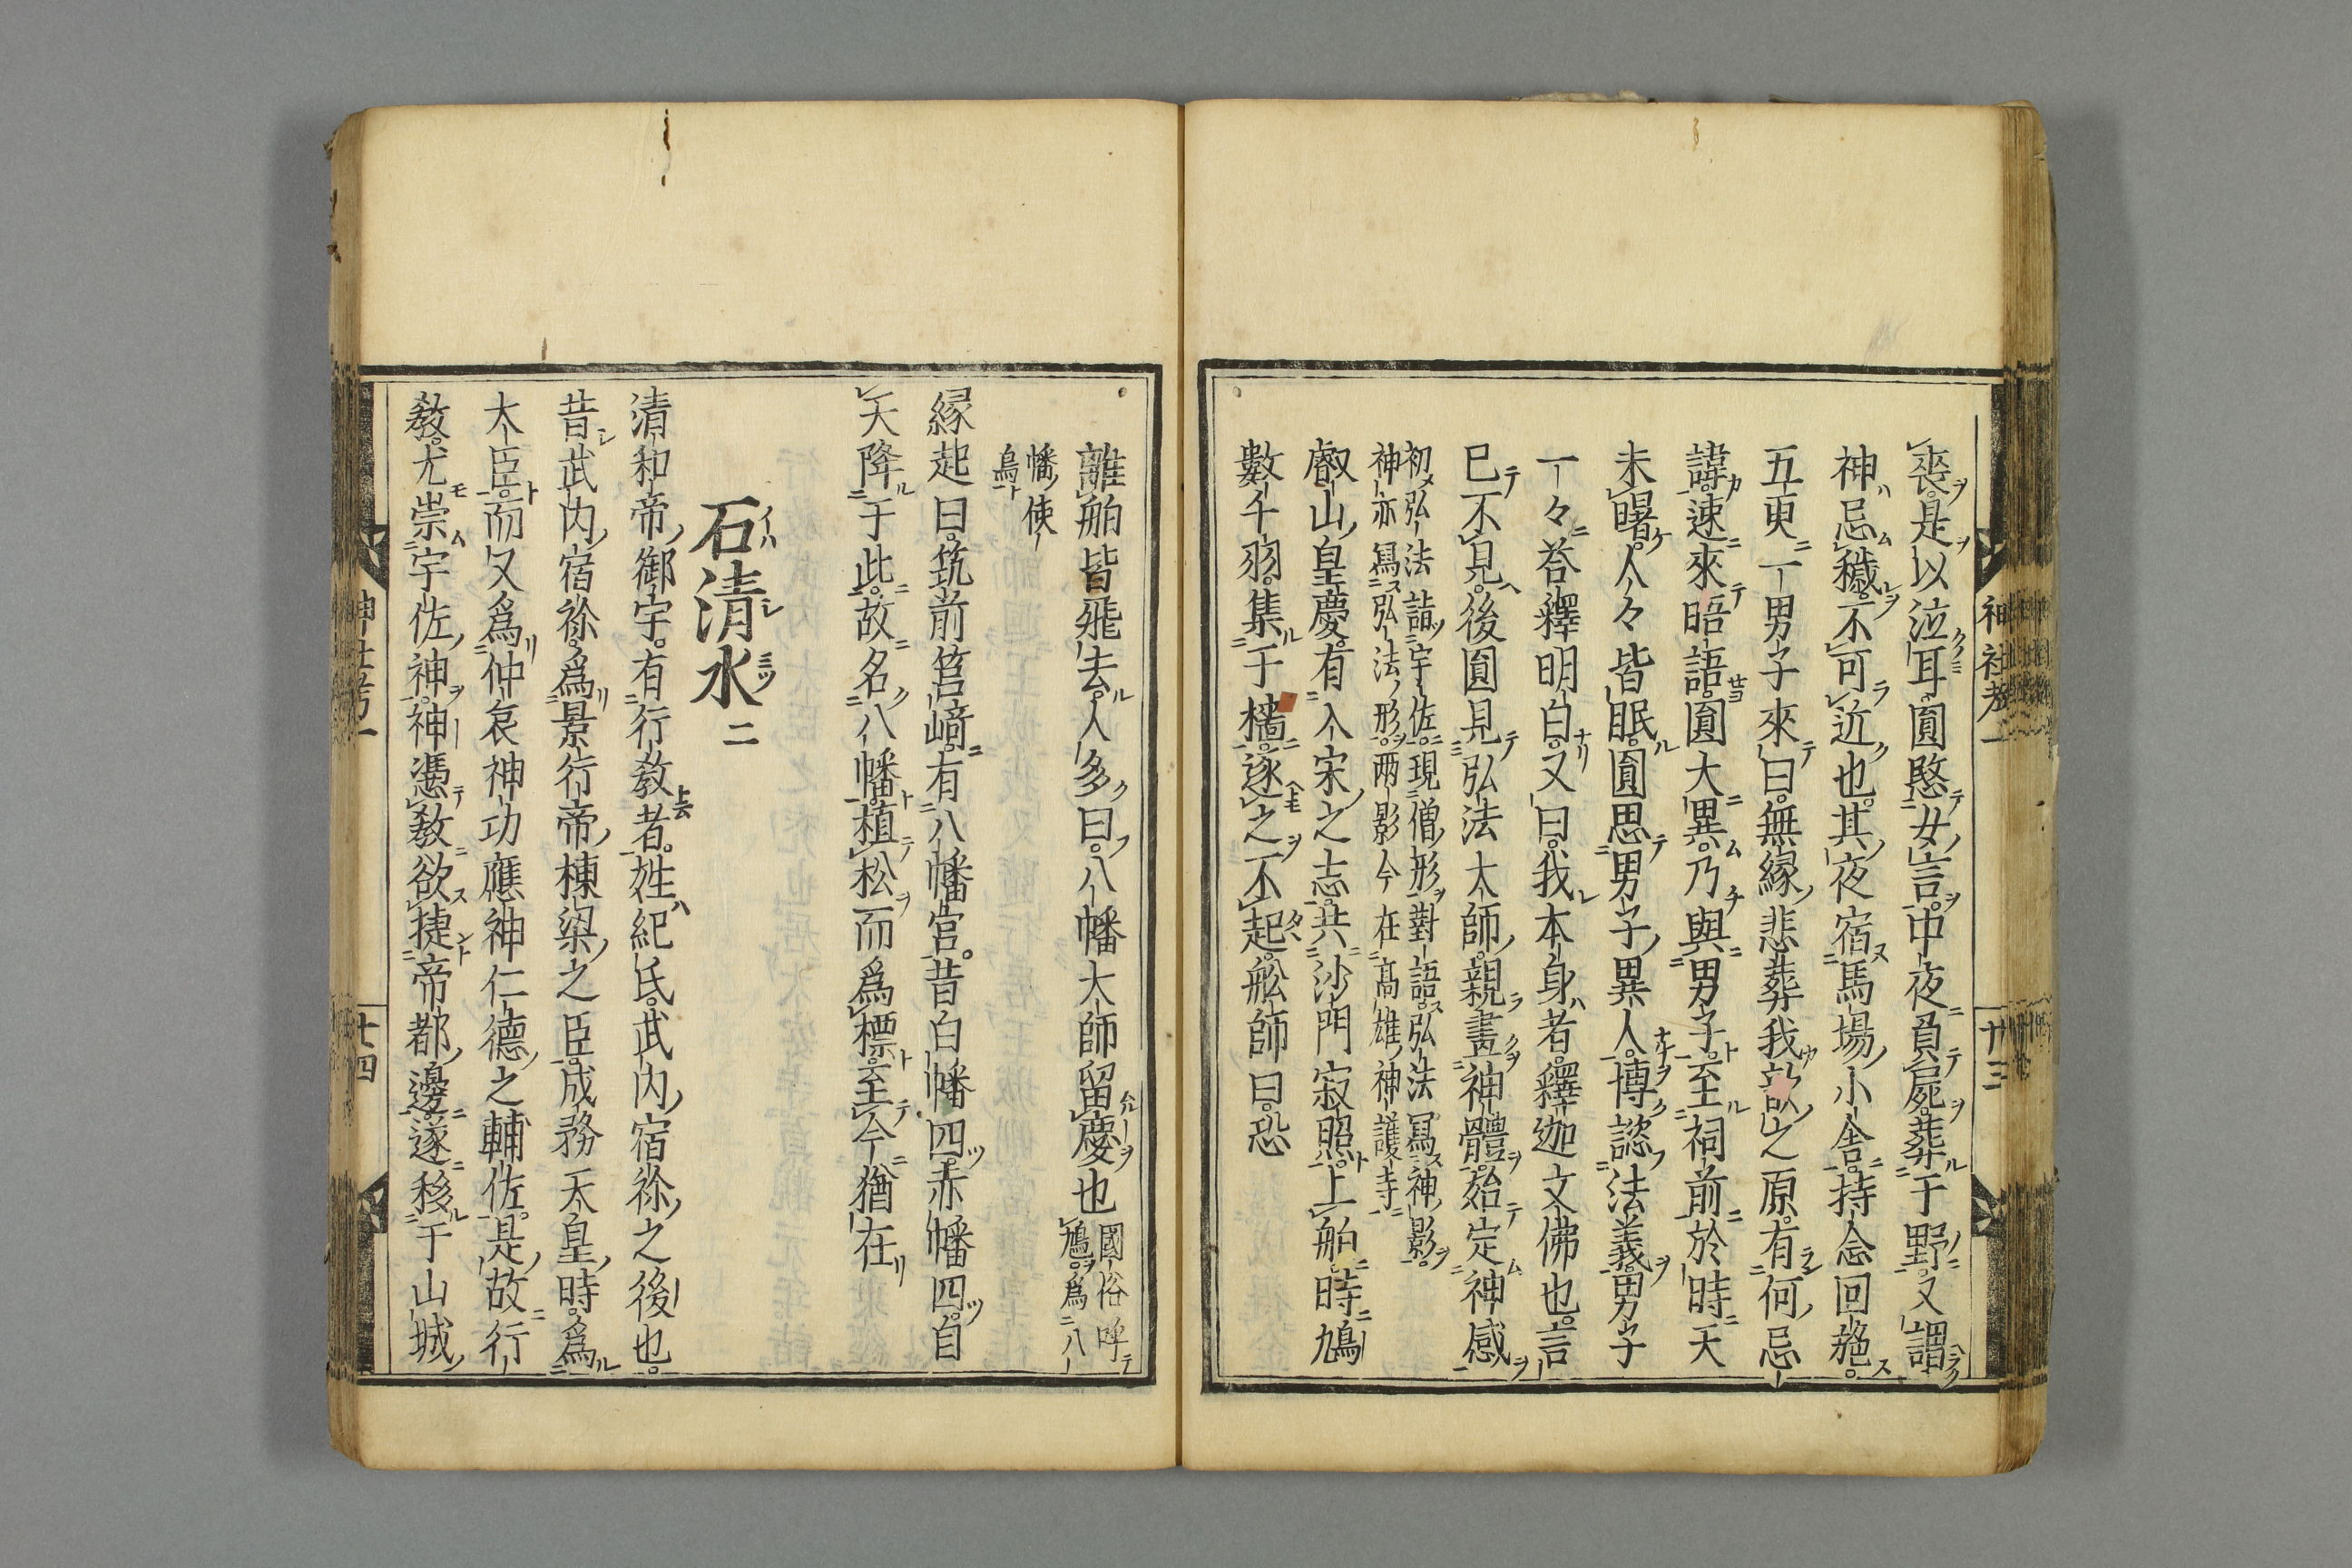 喪是以泣耳圓愍女言中夜負屍葬于野又謂
神忌穢不可近也其夜宿馬場小舎持念回䒌
五更一男子來曰無縁悲葬我之原有何忌
諱速來晤語圓大異乃與男子至祠前於時天
未曙人々皆眠圓思男子異人博諮法義男子
一々荅釋明白又曰我本身者釋迦文佛也言
已不見後圓見弘法大師親畫神體始定神感
初弘法詣宇佐現僧形對語弘法冩神影
神亦冩弘法形兩影今在髙雄神護寺
叡山皇慶有入宋之志共沙門寂照上舶時鳩
數千羽集于檣逐之不起舩師曰恐
神社考一
廿三
離舶皆飛去人多曰八幡大師留慶也國俗呼
鳩為八
幡使
鳥
縁起曰筑前筥﨑有八幡宮昔白幡四赤幡四自
天降于此故名八幡植松而為標至今猶在
石清水二
イハシミツ
清和帝御宇有行教者姓紀氏武内宿祢之後也
昔武内宿祢為景行帝棟梁之臣成務天皇時為
大臣而又為仲哀神功應神仁德之輔佐是故行
教尤崇宇佐神神憑教欲捷帝都邊遂移于山城
神社考一
廿四